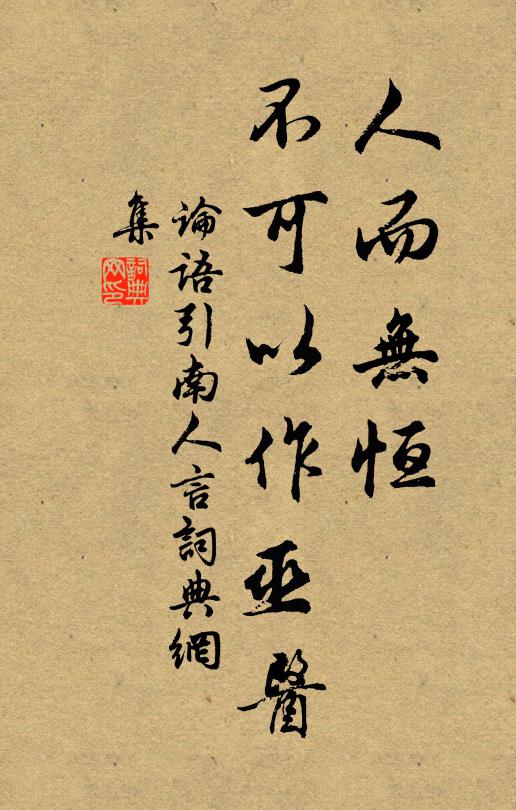 人而無恆
不可以作巫醫
論語引南人言詞典網
集
詞典
网印